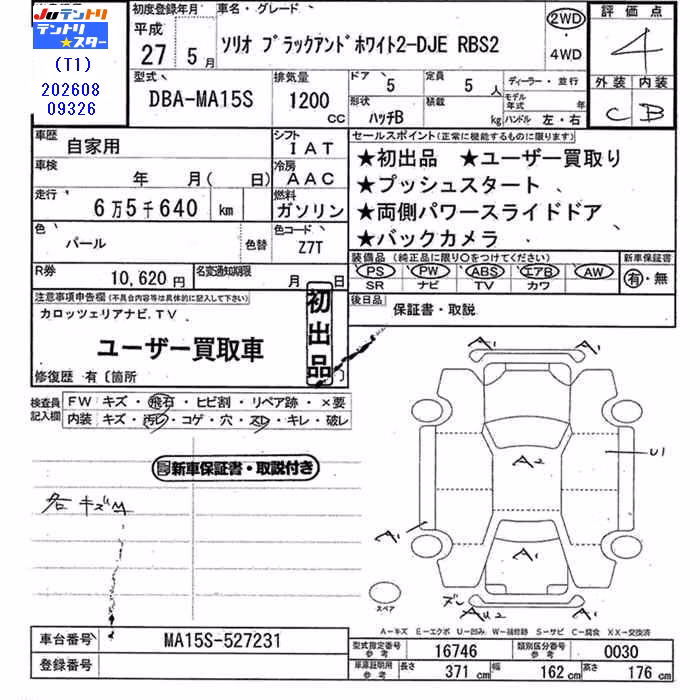 JU テントリ
テントリ
★スター
(T1)
202608
09326
初度登録年月
平成
27 5月
車名・グレード
ソリオ ブラックアンドホワイト2-DJE RBS2
2WD
・
4WD
評価点
4
外装 内装
C B
型式
DBA-MA15S
排気量
1200
CC
ドア
5
定員
5 人
形状
ハッチB
積載
kg
ディーラー・並行
モデル年式 年
ハンドル 左・右
車歴
自家用
シフト
IAT
車検
年 月( 日)
冷房
AAC
走行
6万5千640 km
燃料
ガソリン
色
パール
色替
色コード
Z7T
R券
10,620円
名変通知期限
月 日
セールスポイント(正常に機能するものに限ります)
★初出品 ★ユーザー買取り
★プッシュスタート
★両側パワースライドドア
★バックカメラ
装備品 (純正品に限り○をつけてください)
PS PW ABS エアB AW
SR ナビ TV カワ
新車保証書
有・無
後日品
保証書・取説
注意事項申告欄(不具合内容等は具体的に記入して下さい)
カロッツェリアナビ.TV
ユーザー買取車
初出品
修復歴 有〔箇所 〕
検査員
記入欄
FW キズ・飛石・ヒビ割・リペア跡・×要
内装 キズ・汚レ・コゲ・穴・スレ・キレ・破レ
新車保証書・取説付き
各キズ
A1 A1
A2
U1
A1
A1
ズレ
AU2 A1
スペア
A-キズ E-エクボ U-凹み W-補修跡 S-サビ C-腐食 XX-交換済
車台番号
MA15S-527231
登録番号
型式指定番号
参考
16746
類別区分番号
参考
0030
車庫証明用
参考
長さ 371 cm
幅 162 cm
高さ 176 cm